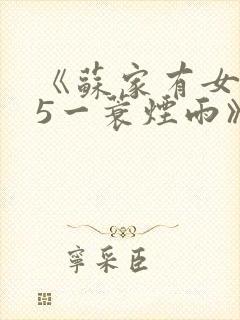 《蘇家有女
5一蓑煙雨》
寧采臣